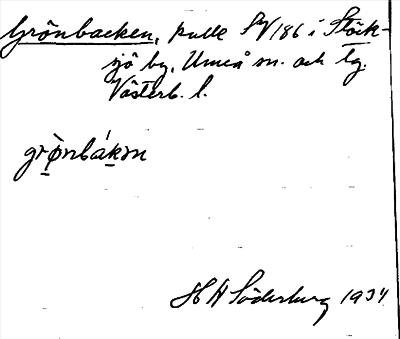 Grönbacken, kulle SV 186 i Stöck-
sjö by, Umeå sn. och tg.
Västerb. l.
grö̀nbákən
H H Söderberg 1934